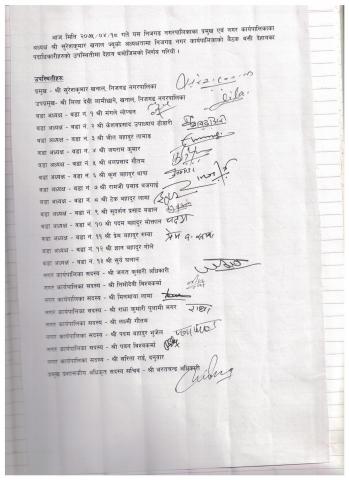 आज मिति २०७५/०४/१८ गते यस निजगढ नगरपालिकाका प्रमुख एवं नगर कार्यपालिकाका
अध्यक्ष श्री सुरेशकुमार खनाल ज्यूको अध्यक्षतामा निजगढ नगर कार्यपालिकाको बैठक बसी देहायका
पदाधिकारीहरुको उपस्थितीमा देहाय बमोजिमको निर्णय गरियो ।
उपस्थितीहरु
प्रमुख - श्री सुरेशकुमार खनाल, निजगढ नगरपालिका
उपप्रमुख - श्री लिला देवी लामीछाने, खनाल, निजगढ नगरपालिका
वडा अध्यक्ष - वडा नं. १ श्री मंगले लोप्चन
वडा अध्यक्ष - वडा नं. २ श्री केशवप्रसाद उपाध्याय
वडा अध्यक्ष - वडा नं. ३ श्री जीत बहादुर लामाङ
वडा अध्यक्ष - वडा नं. ४ श्री जयराम कुमार
वडा अध्यक्ष - वडा नं. ५ श्री प्रसाद गौतम
वडा अध्यक्ष - वडा नं. ६ श्री बहादुर थापा
वडा अध्यक्ष - वडा नं. ७ श्री रामजी प्रसाद बजगाई
वडा अध्यक्ष - वडा नं. ८ श्री टेक बहादुर लामा
वडा अध्यक्ष - वडा नं. ९ श्री सुदर्शन प्रसाद
वडा अध्यक्ष - वडा नं. १० श्री पदम बहादुर मोक्तान
वडा अध्यक्ष - वडा नं. ११ श्री प्रेम बहादुर
वडा अध्यक्ष - वडा नं. १२ श्री ज्ञान बहादुर गोले
वडा अध्यक्ष - वडा नं. १३ श्री सुर्य घलान
नगर कार्यपालिका सदस्य - श्री कुमारी अधिकारी
नगर कार्यपालिका सदस्य - श्री विश्वकर्मा
नगर कार्यपालिका सदस्य - श्री मिनमाया लामा
नगर कार्यपालिका सदस्य - श्री राधा कुमारी पुलामी मगर
नगर कार्यपालिका सदस्य - श्री लक्ष्मी गौतम
नगर कार्यपालिका सदस्य - श्री पदम बहादुर भुजेल
नगर कार्यपालिका सदस्य - श्री पवन विश्वकर्मा
नगर कार्यपालिका सदस्य - श्री सरिता राई, दनुवार
प्रमुख प्रशासकीय अधिकृत सदस्य सचिव - श्री भरतचन्द्र अधिकारी